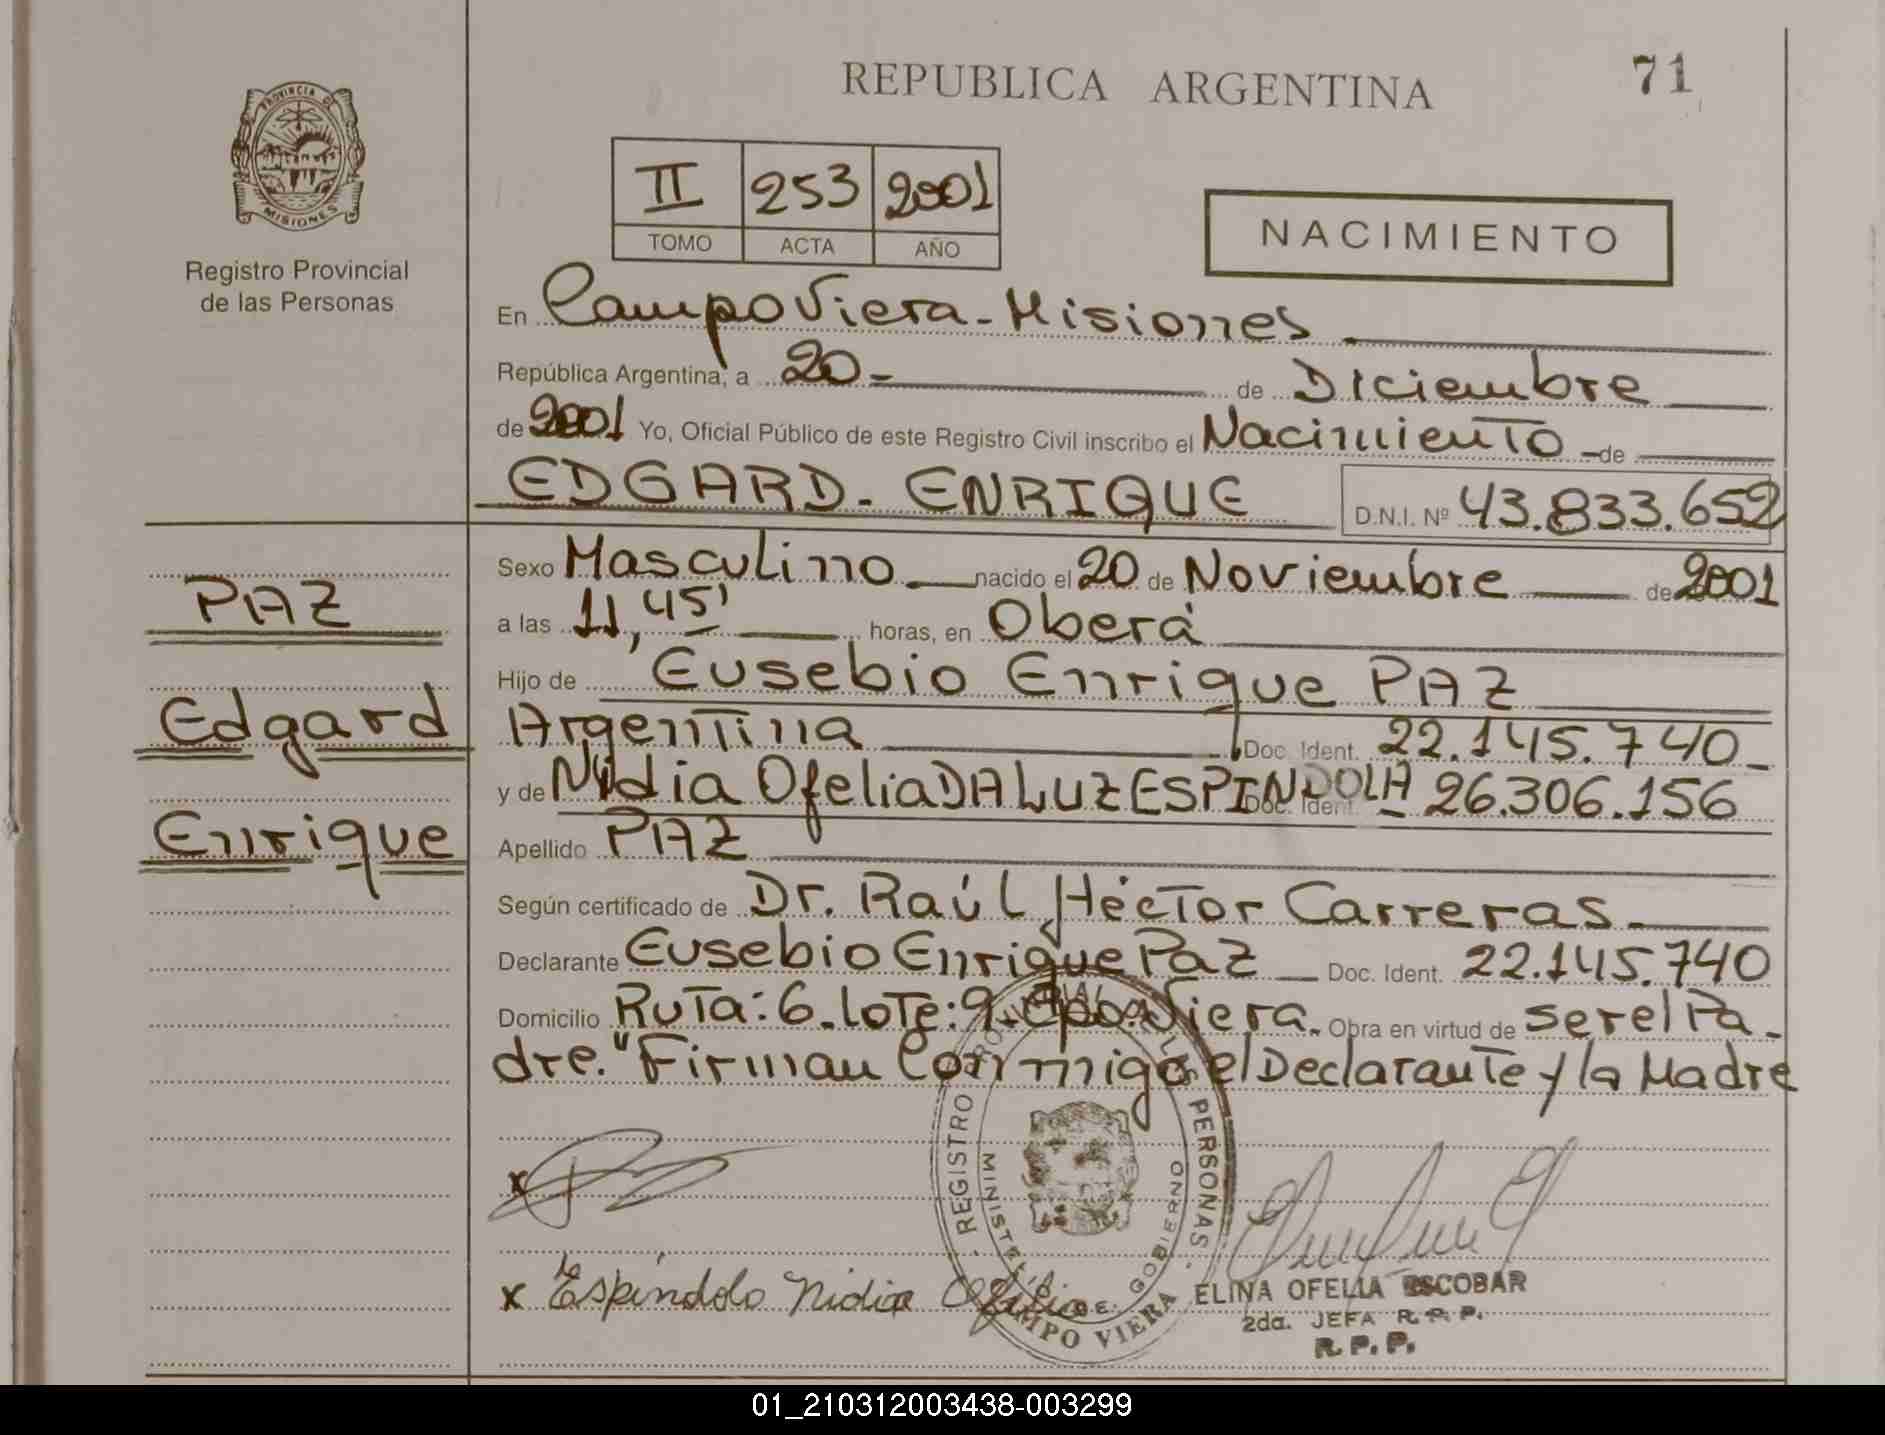 REPUBLICA ARGENTINA
71
PROVINCIA DE
MISIONES
Registro Provincial
de las Personas
II 253 2001
TOMO ACTA AÑO
NACIMIENTO
En Campo Viera - Misiones
República Argentina, a 20 - de Diciembre
de 2001 Yo, Oficial Público de este Registro Civil inscribo el Nacimiento - de
EDGARD - ENRIQUE D.N.I. Nº 43.833.652
Sexo Masculino nacido el 20 de Noviembre de 2001
PAZ
a las 11,45' horas, en Oberá
Hijo de Eusebio Enrique PAZ
Edgard
Argentina Doc. Ident. 22.145.740 -
y de Nidia Ofelia DA LUZ ESPINDOLA Doc. Ident. 26.306.156
Enrique
Apellido PAZ
Según certificado de Dr. Raúl Héctor Carreras -
Declarante Eusebio Enrique Paz Doc. Ident. 22.145.740
Domicilio Ruta: 6 - lote: 9 - Cpo. Viera. Obra en virtud de ser el Pa-
dre. "Firman Conmigo el Declarante y la Madre
x
REGISTRO PERSONAS
MINISTE DE GOBIERNO
CAMPO VIERA
x Espíndola Nidia Ofelia
ELINA OFELIA ESCOBAR
2da. JEFA R.P.P.
R.P.P.
01_210312003438-003299